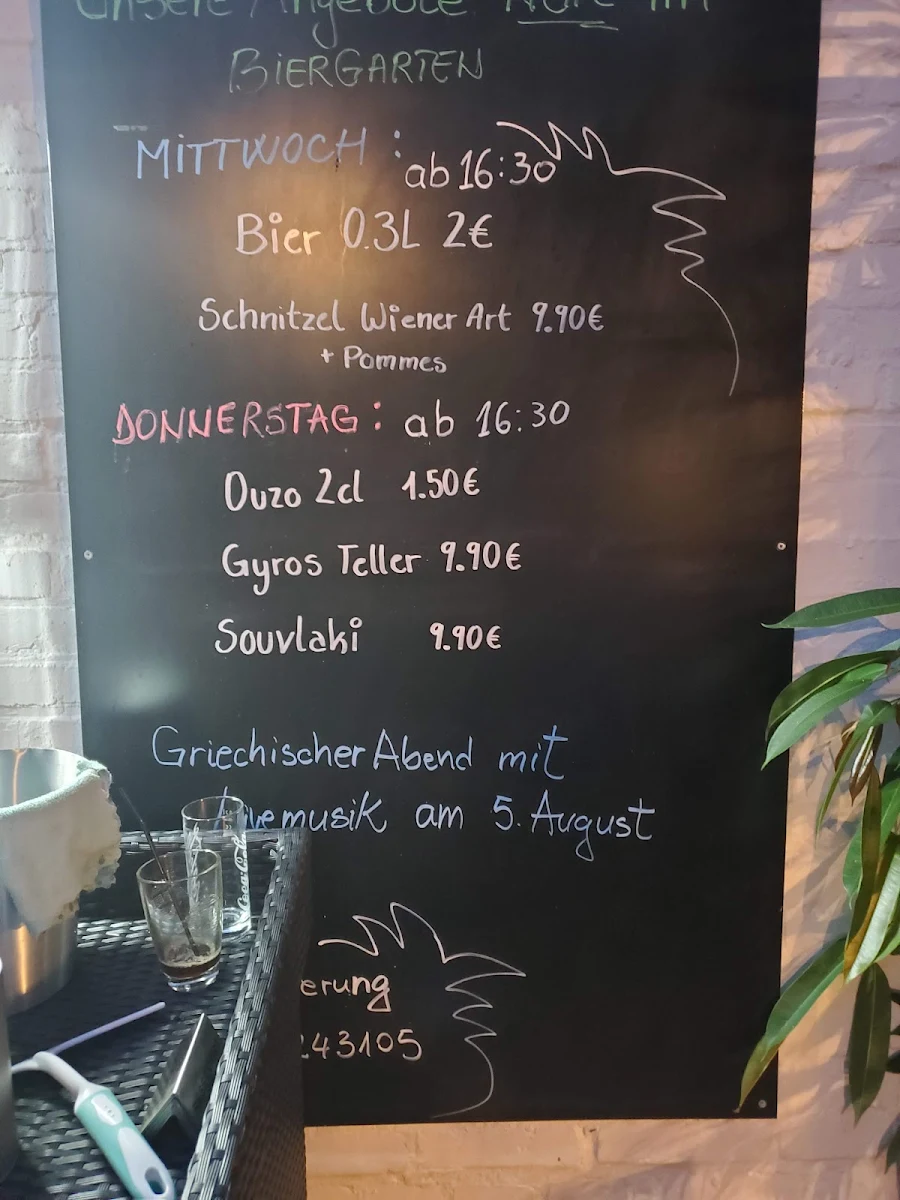 Unsere Angebote NUR im
BIERGARTEN
MITTWOCH : ab 16:30
Bier 0.3L 2€
Schnitzel Wiener Art 9.90€
+ Pommes
DONNERSTAG : ab 16:30
Ouzo 2cl 1.50€
Gyros Teller 9.90€
Souvlaki 9.90€
Griechischer Abend mit
Livemusik am 5. August
erung
243105
Coca-Cola